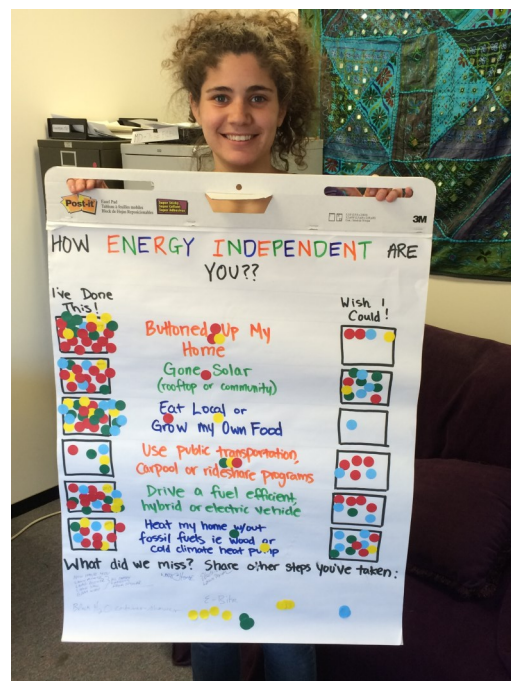 Post-it
Super Sticky
3M
HOW ENERGY INDEPENDENT ARE
YOU??
I've Done
This!
Wish I
Could!
Buttoned Up My
Home
Gone Solar
(rooftop or community)
Eat Local or
Grow my Own Food
Use public transportation,
Carpool or rideshare programs
Drive a fuel efficient,
hybrid or electric vehicle
Heat my home w/out
fossil fuels ie wood or
cold climate heat pump
What did we miss? Share other steps you've taken: